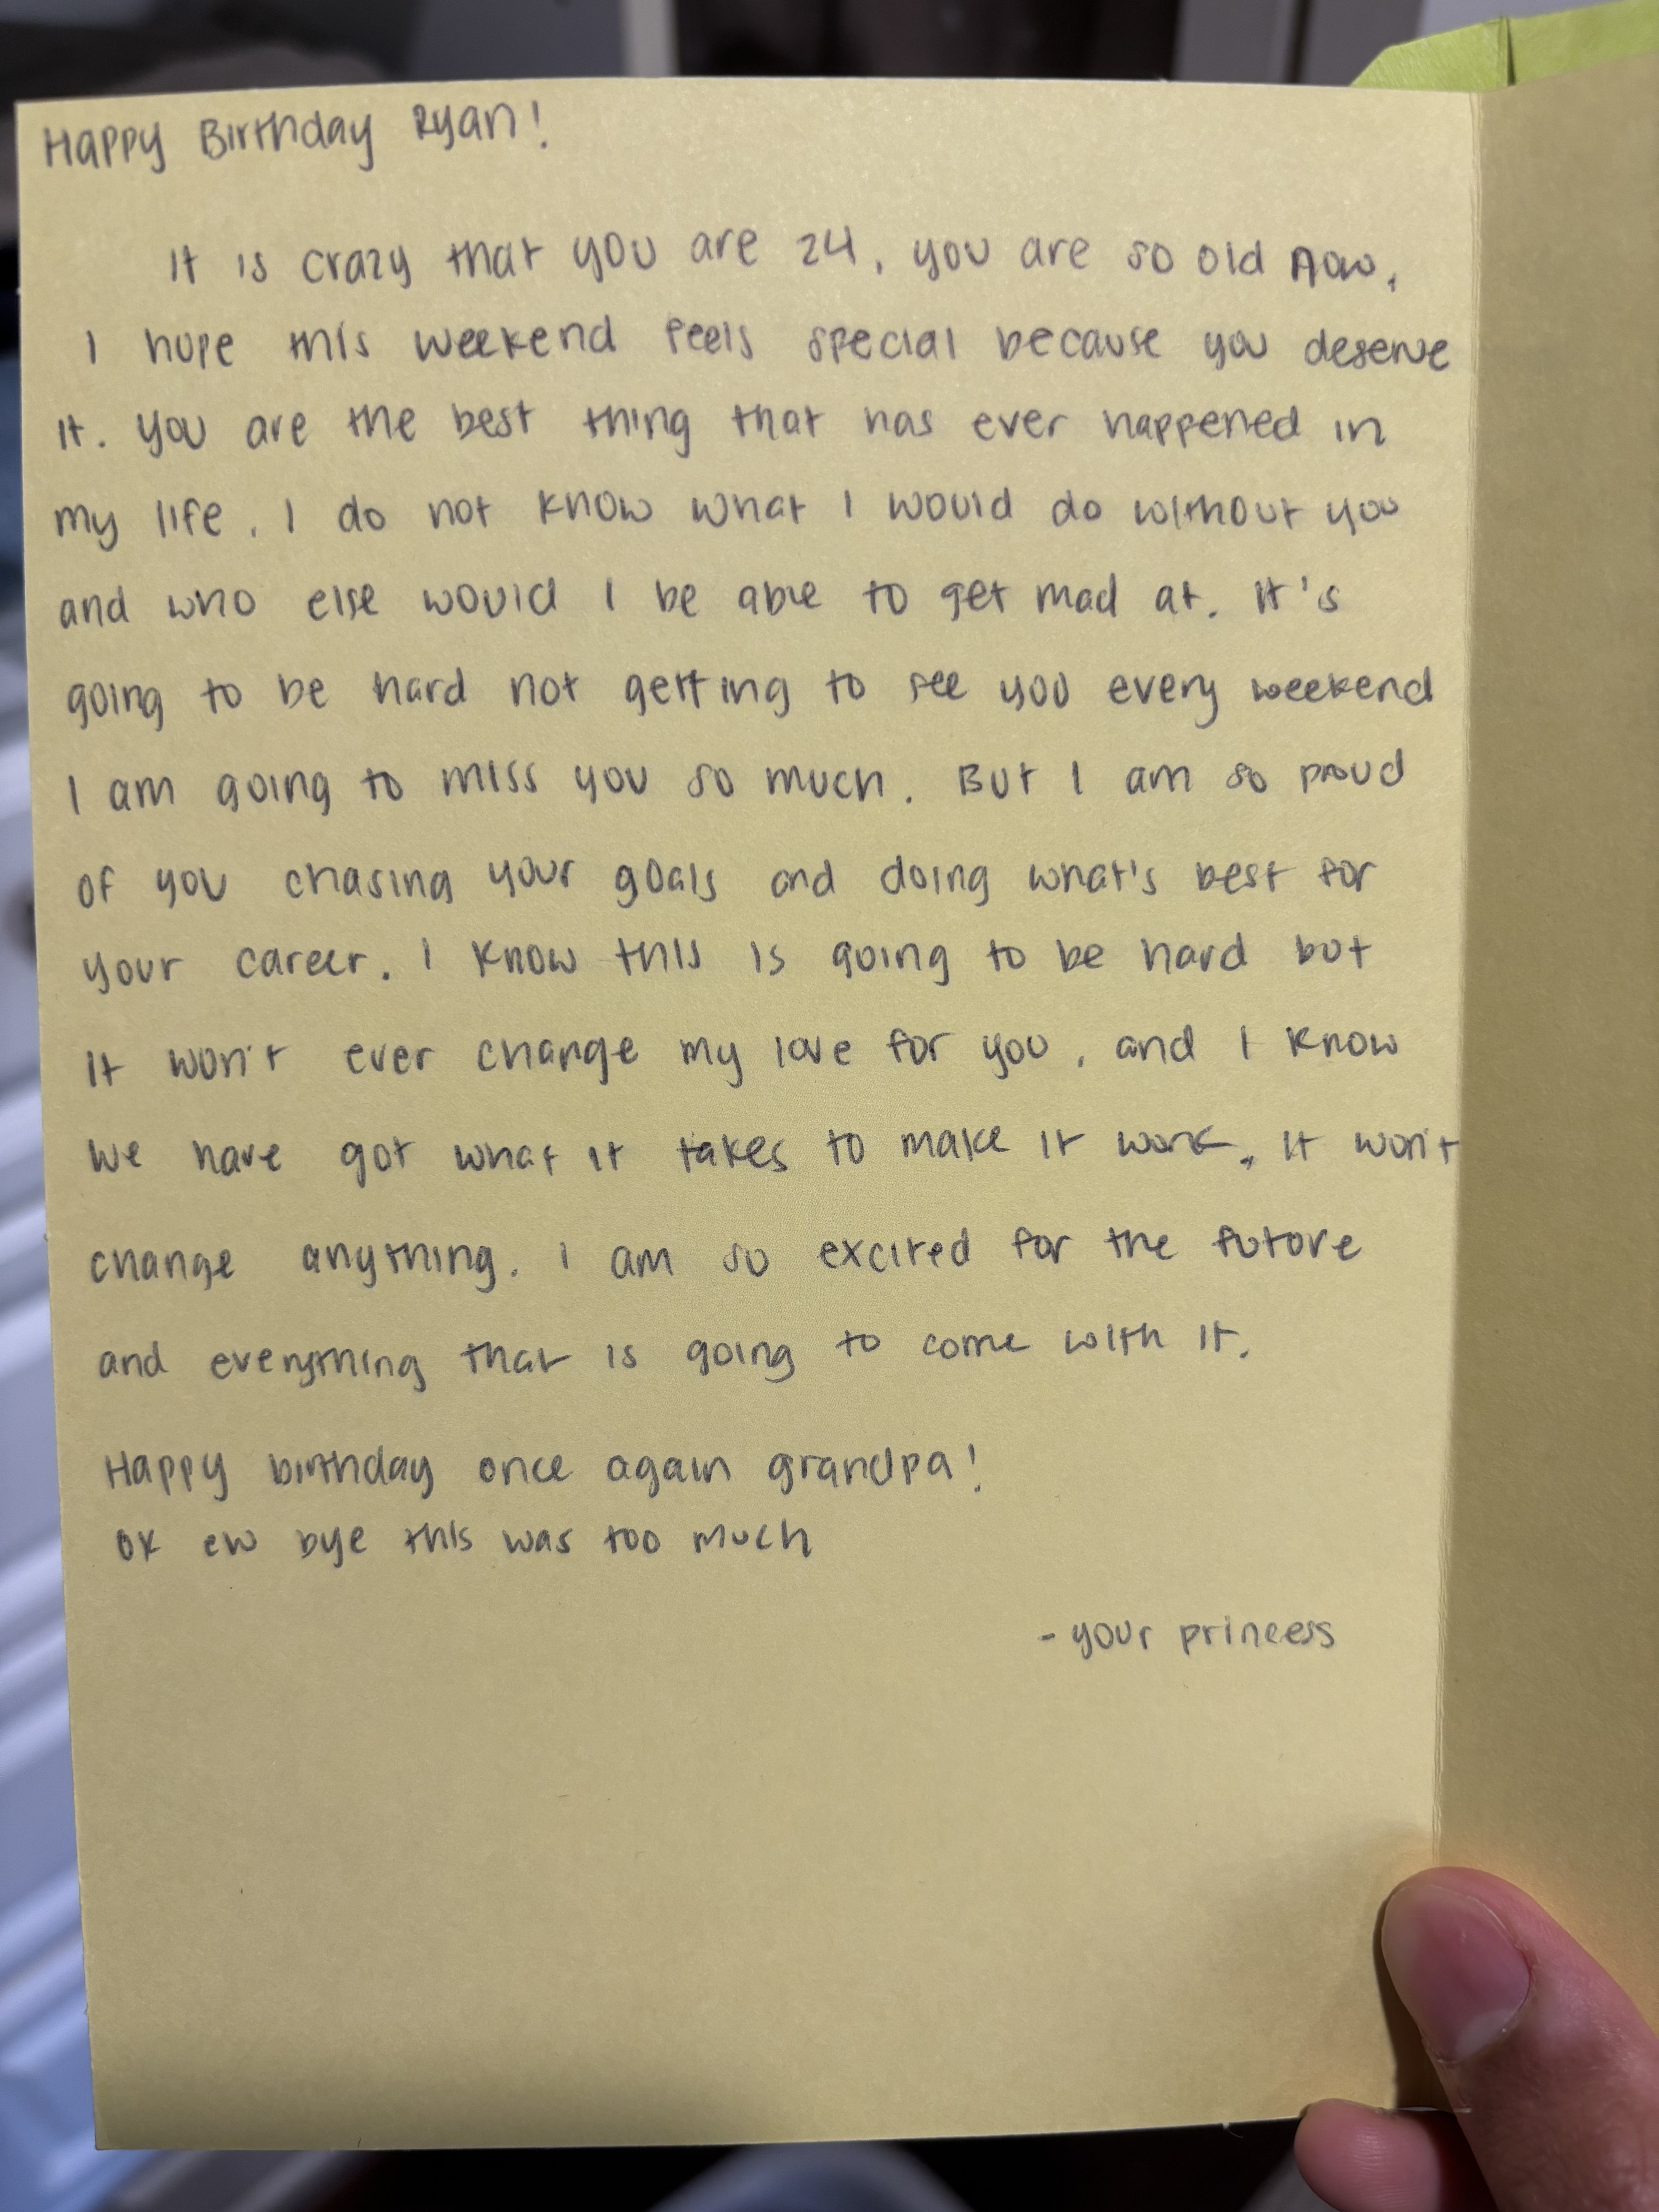 Happy Birthday Ryan!
It is crazy that you are 24, you are so old now,
I hope this weekend feels special because you deserve
it. You are the best thing that has ever happened in
my life. I do not know what I would do without you
and who else would I be able to get mad at. It's
going to be hard not getting to see you every weekend
I am going to miss you so much. But I am so proud
of you chasing your goals and doing what's best for
your career. I know this is going to be hard but
it won't ever change my love for you, and I know
we have got what it takes to make it work, it won't
change anything. I am so excited for the future
and everything that is going to come with it.
Happy birthday once again grandpa!
ok ew bye this was too much
- your princess